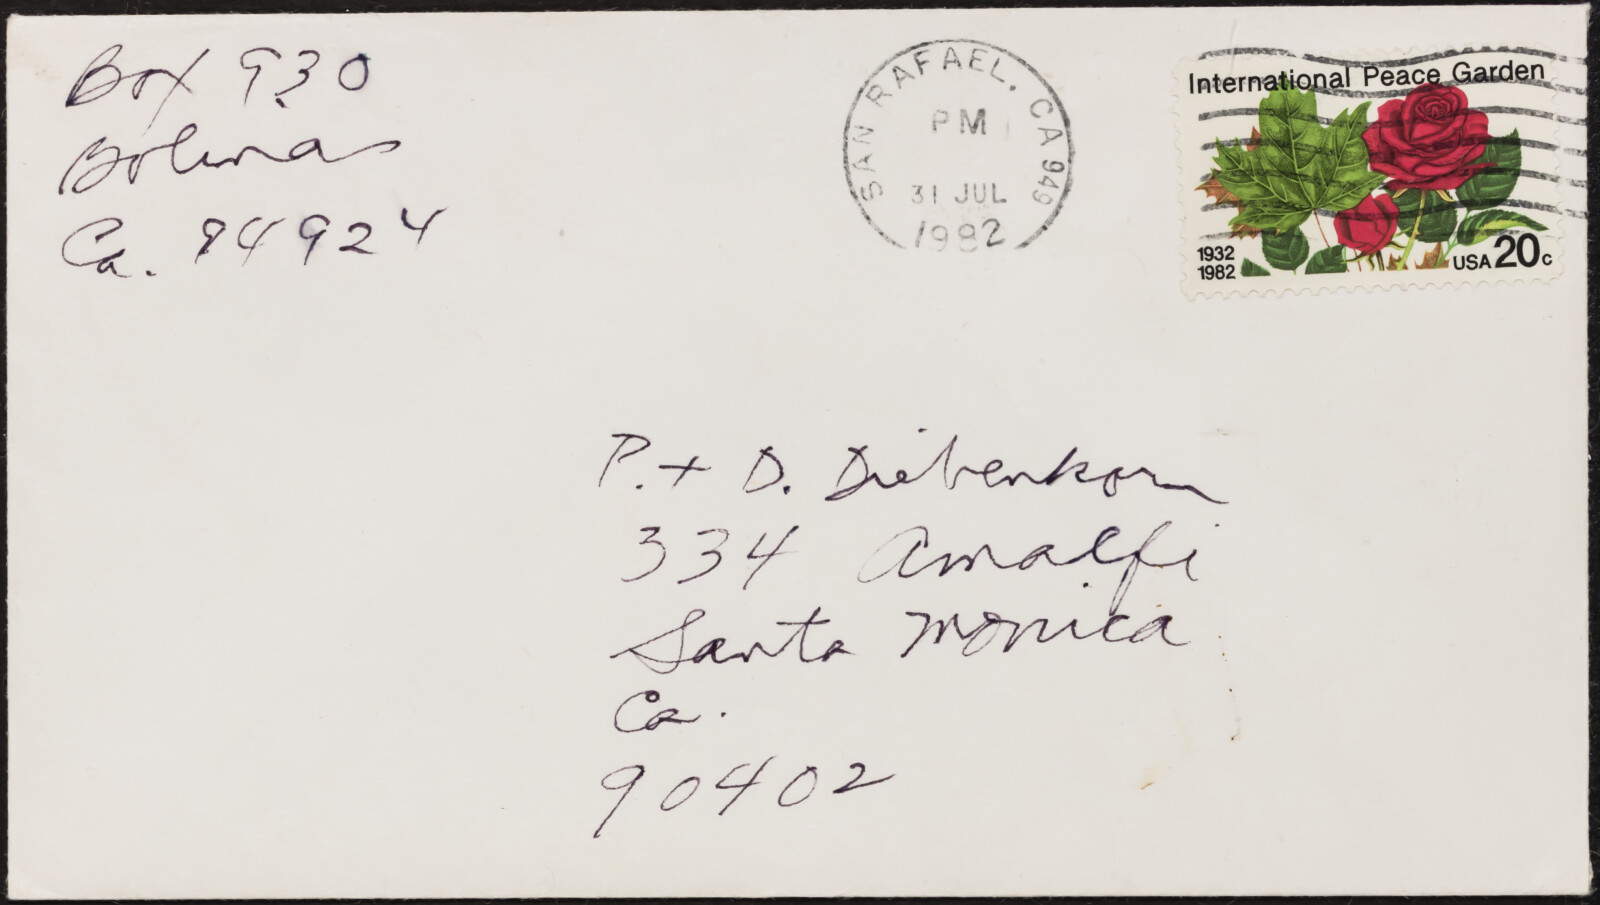 Box 930
Bolinas
Ca. 94924
SAN RAFAEL, CA 949
PM
31 JUL
1982
International Peace Garden
1932
1982
USA 20c
P. + D. Diebenkorn
334 Amalfi
Santa Monica
Ca.
90402